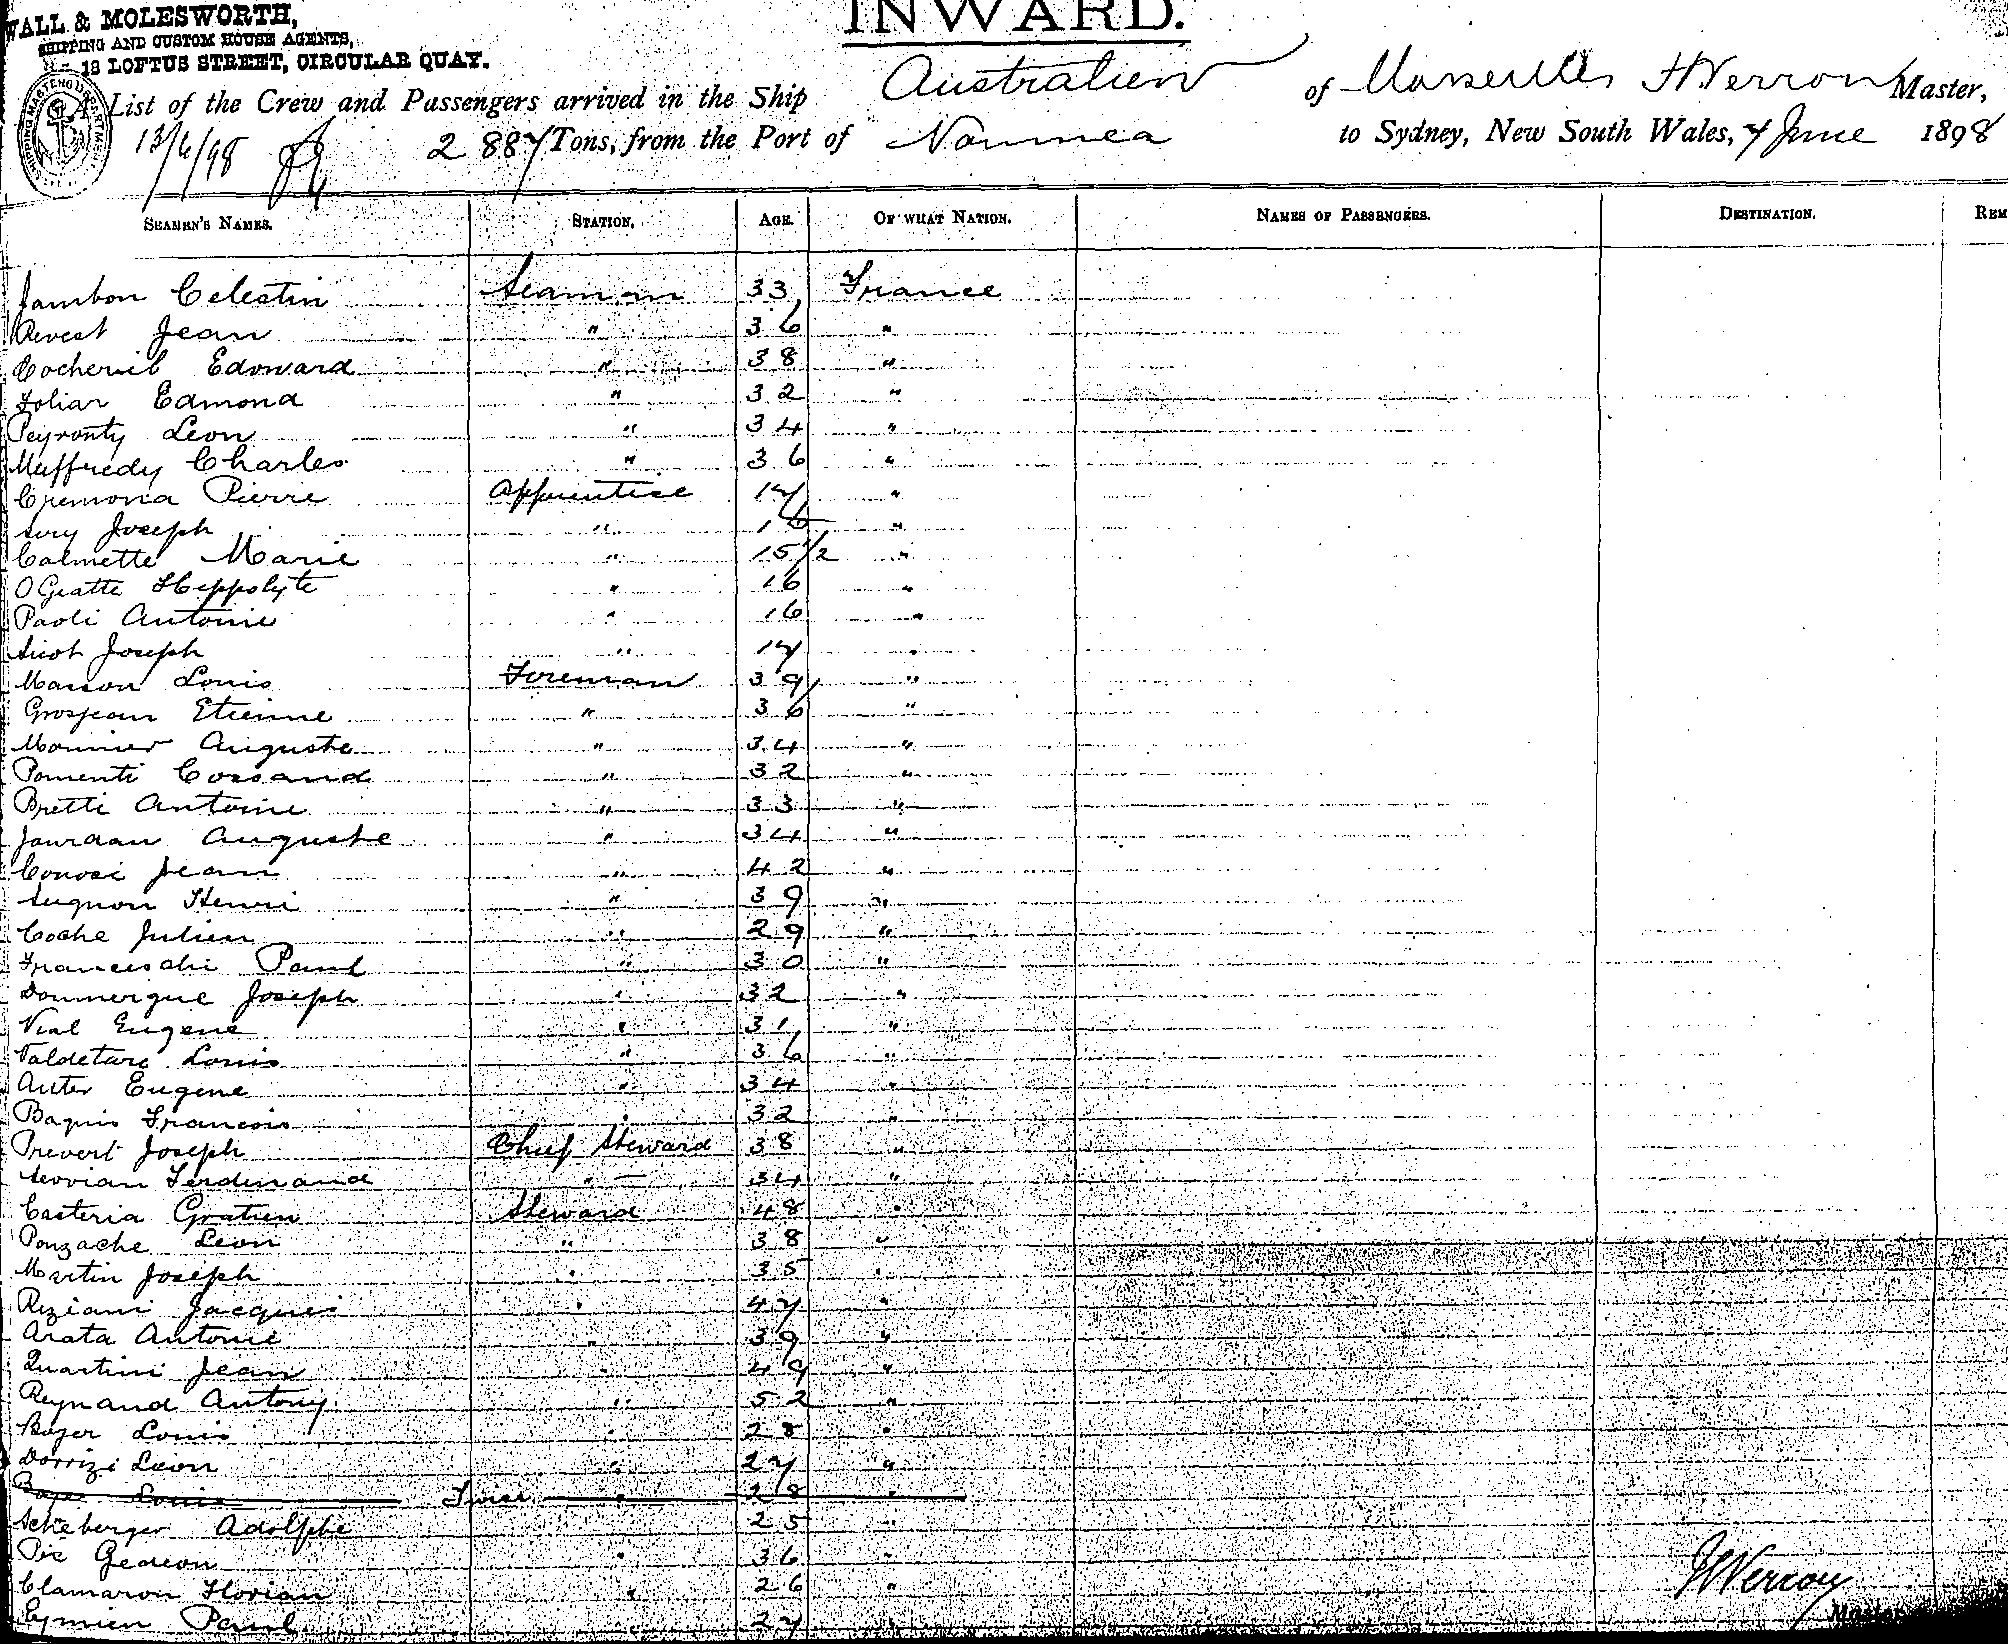 WALL & MOLESWORTH,
SHIPPING AND CUSTOM HOUSE AGENTS,
18 LOFTUS STREET, CIRCULAR QUAY.
INWARD.
A List of the Crew and Passengers arrived in the Ship Australien of Marseilles Verron Master,
13/6/98 2887 Tons, from the Port of Noumea to Sydney, New South Wales, 7 June 1898
SEAMEN'S NAMES. STATION. AGE. OF WHAT NATION. NAMES OF PASSENGERS. DESTINATION. REM
Jambon Celestin Seaman 33 France
Revest Jean " 36 "
Cochenil Edouard " 38 "
Foliar Edmond " 32 "
Peyronty Leon " 34 "
Muffredy Charles " 36 "
Cremona Pierre Apprentice 17 "
Sury Joseph " 16 "
Calmette Marie " 15 1/2 "
OGiatte Hippolyte " 16 "
Paoli Antoine " 16 "
Sicot Joseph " 17 "
Masson Louis Foreman 39 "
Grosjean Etienne " 36 "
Monnier Auguste " 34 "
Pomenti Cossand " 32 "
Bretti Antoine " 33 "
Jourdan Auguste " 34 "
Conosi Jean " 42 "
Augnon Henri " 39 "
Coche Julien " 29 "
Franceschi Paul " 30 "
Doumergue Joseph " 32 "
Vial Eugene " 31 "
Valdetare Louis " 36 "
Auter Eugene " 34 "
Baquis Francois " 32 "
Prevert Joseph Chief Steward 38 "
Ferdinand " 34 "
Casteria Gratien Steward 48 "
Pouzache Leon " 38 "
Martin Joseph " 35 "
Riziani Jacques " 47 "
Arata Antoine " 39 "
Quartini Jean " 49 "
Reynaud Antony " 52 "
Boyer Louis " 28 "
Dorrizi Leon " 27 "
Boyer Louis Twice " 28 "
Scheberger Adolphe 25 "
Pic Gedeon " 36 "
Clamaron Florian " 26 "
Eymien Paul 27 "
Verron
Master